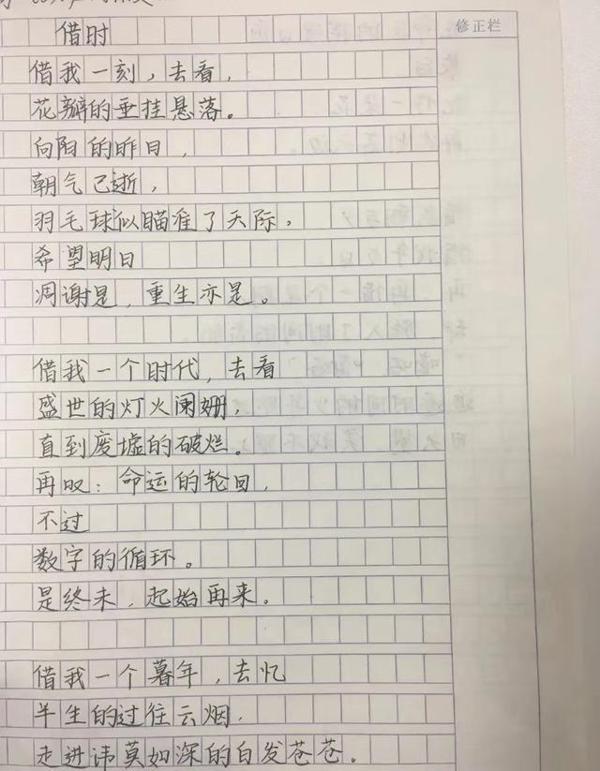 修正栏
借时
借我一刻，去看，
花瓣的垂挂悬落。
向阳的昨日，
朝气已逝，
羽毛球似瞄准了天际，
希望明日
凋谢是，重生亦是。
借我一个时代，去看
盛世的灯火阑姗，
直到废墟的破烂。
再叹：命运的轮回，
不过
数字的循环。
是终末，起始再来。
借我一个暮年，去忆
半生的过往云烟，
走进讳莫如深的白发苍苍。